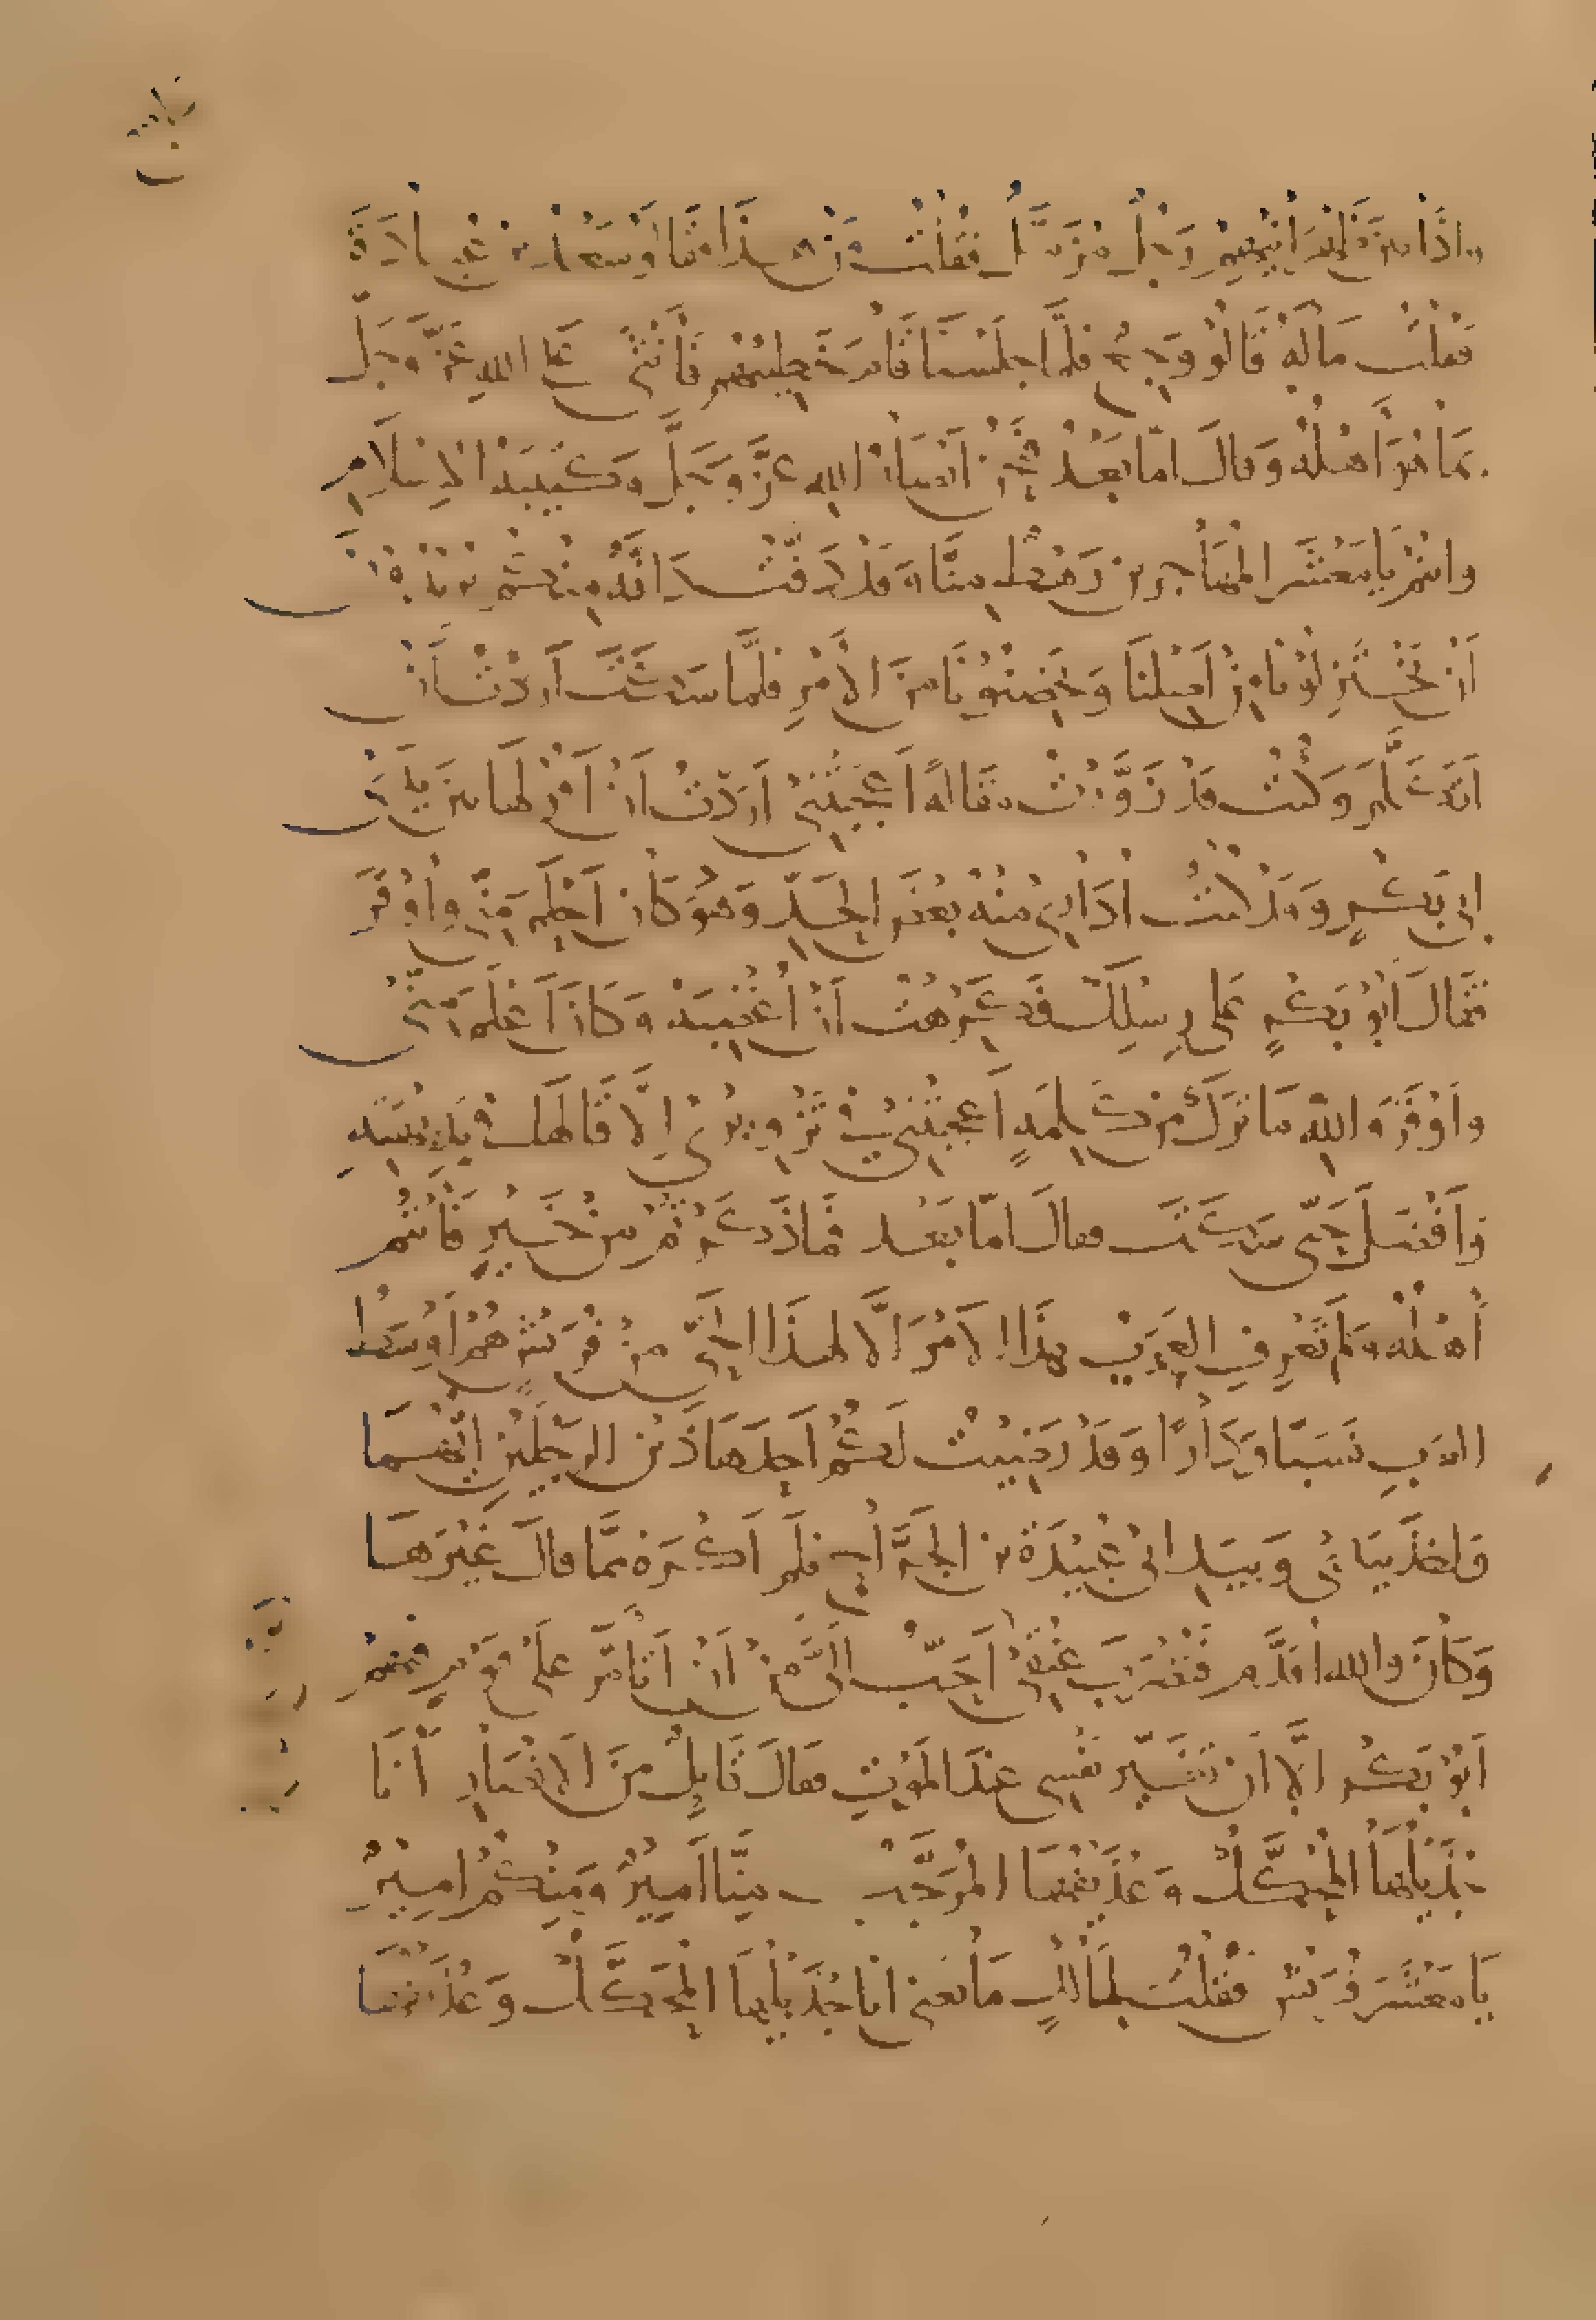 واذا بين ظهرانيهم رجل مزمل فقلت من هذا فقالوا سعد بن عبادة
فقلت ماله قالوا وجع فلما جلسنا قام خطيبهم فأثنى على الله عز وجل
بما هو أهله وقال اما بعد فنحن انصار الله عز وجل وكتيبة الاسلام
وانتم يا معشر المهاجرين رهط منا وقد دفت دافة منكم يريدون
أن يختزلونا من أصلنا ويحضنونا من الأمر فلما سكت أردت أن
أتكلم وكنت قد زورت مقالة أعجبتني أردت أن أقولها بين يدي
ابي بكر وقد كنت أداري منه بعض الحد وهو كان أحلم مني وأوقر
فقال أبو بكر على رسلك فكرهت أن أغضبه وكان أعلم مني
وأوقر والله ما ترك من كلمة أعجبتني في تزويري إلا قالها في بديهته
وأفضل حتى سكت فقال اما بعد فما ذكرتم من خير فأنتم
أهله ولم تعرف العرب هذا الأمر الا لهذا الحي من قريش هم أوسط
العرب نسبا ودارا وقد رضيت لكم أحد هاذين الرجلين أيهما
فأخذ بيدي وبيد ابي عبيدة بن الجراح فلم أكره مما قال غيرها
وكان والله أقدم فتضرب عنقي أحب الي من أن أتأمر على قوم فيهم
أبو بكر الا ان تغير نفسي عند الموت فقال قايل من الانصار أنا
جذيلها المحكك وعذيقها المرجب منا أمير ومنكم امير
يا معشر قريش فقلت لمالك ما يعني انا جذيلها المحكك وعذيقها